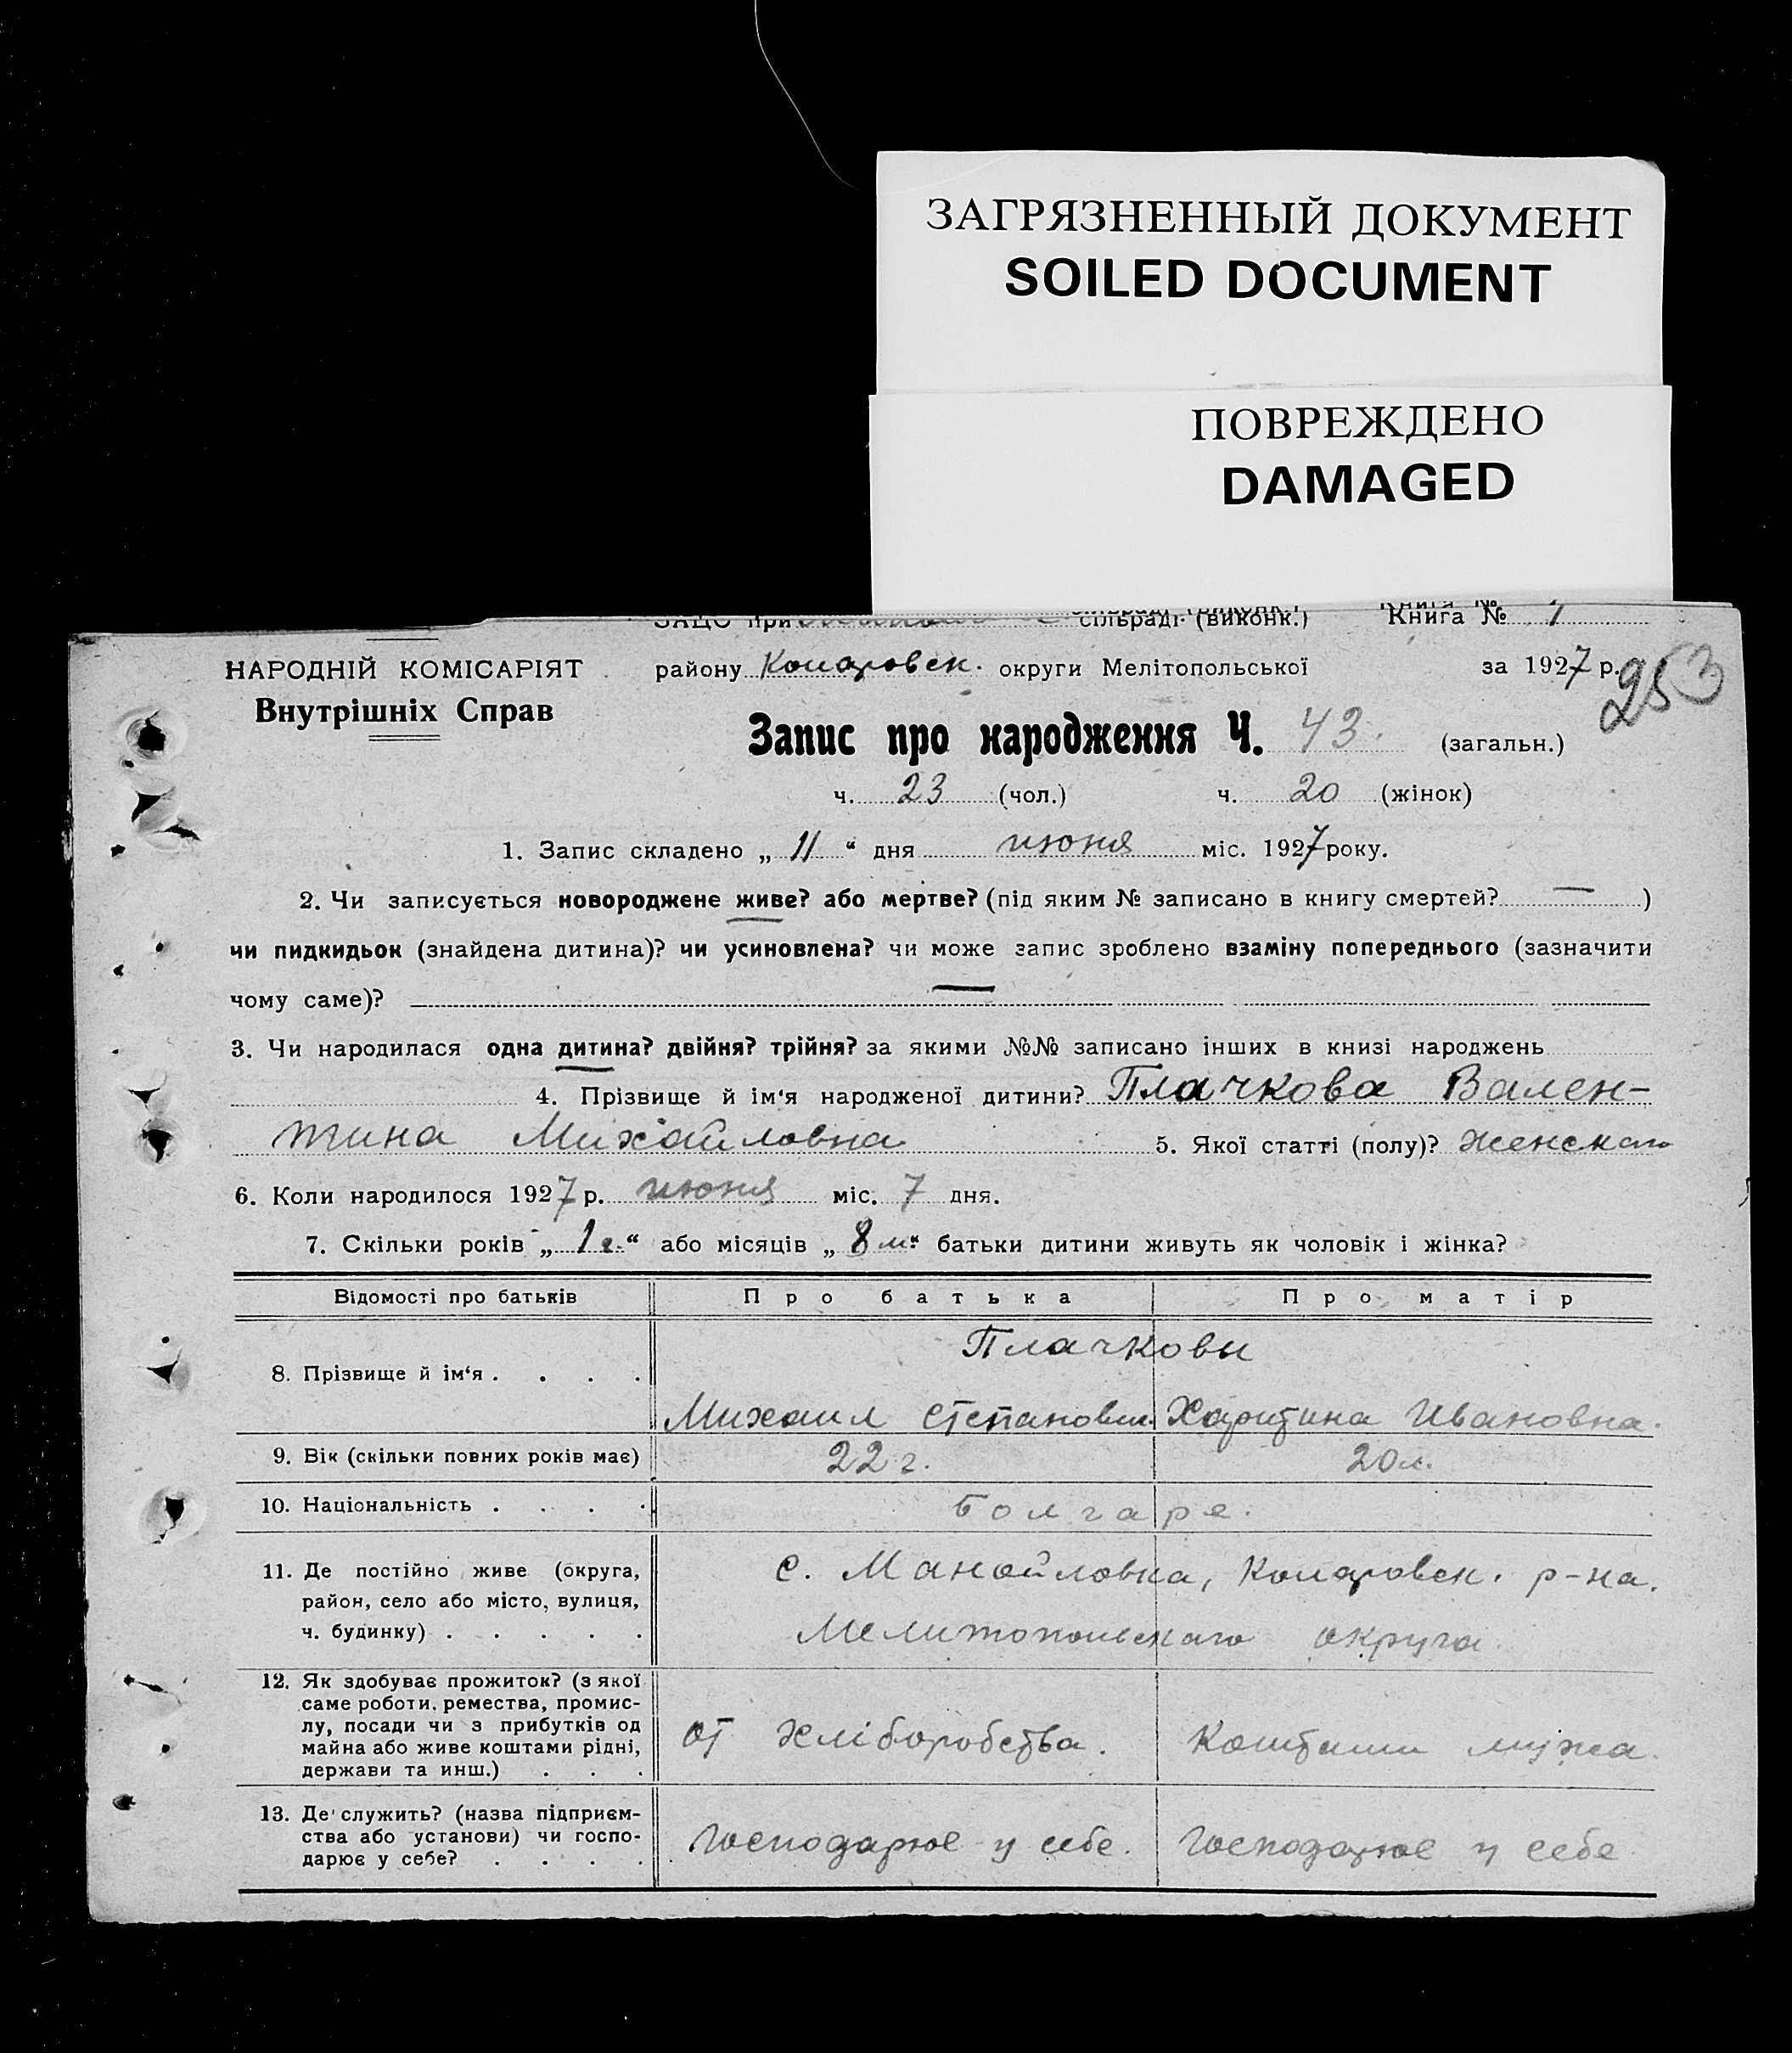 ЗАГРЯЗНЕННЫЙ ДОКУМЕНТ
SOILED DOCUMENT
ПОВРЕЖДЕНО
DAMAGED
ЗАЦС при сільраді (виконк.) Книга № 1
НАРОДНІЙ КОМІСАРІЯТ району Коларовск. округи Мелітопольської за 1927 р.
253
Внутрішніх Справ
Запис про народження Ч. 43. (загальн.)
ч. 23 (чол.) ч. 20 (жінок)
1. Запис складено „ 11 “ дня июня міс. 1927 року.
2. Чи записується новороджене живе? або мертве? (під яким № записано в книгу смертей? — )
чи пидкидьок (знайдена дитина)? чи усиновлена? чи може запис зроблено взаміну попереднього (зазначити
чому саме)? —
3. Чи народилася одна дитина? двійня? трійня? за якими №№ записано інших в книзі народжень
4. Прізвище й ім‘я народженої дитини? Плачкова Вален-
тина Михайловна 5. Якої статті (полу)? женскаго
6. Коли народилося 1927 р. июня міс. 7 дня.
7. Скільки років „ 1 г. “ або місяців „ 8 м. “ батьки дитини живуть як чоловік і жінка?
Відомості про батьків Про батька Про матір
Плачковы
8. Прізвище й ім‘я . . . .
Михаил Степанович. Харитина Ивановна.
9. Вік (скільки повних років має) 22 г. 20 л.
10. Національність . . . . Болгаре.
11. Де постійно живе (округа, с. Манойловка, Коларовск. р-на.
район, село або місто, вулиця,
ч. будинку) . . . . . Мелитопольскаго округа
12. Як здобуває прожиток? (з якої
саме роботи, ремества, промис-
лу, посади чи з прибутків од от хліборобства. Коштами мужа.
майна або живе коштами рідні,
держави та инш.) . . .
13. Де служить? (назва підприєм-
ства або установи) чи госпо- Господарює у себе. Господарює у себе
дарює у себе? . . . .